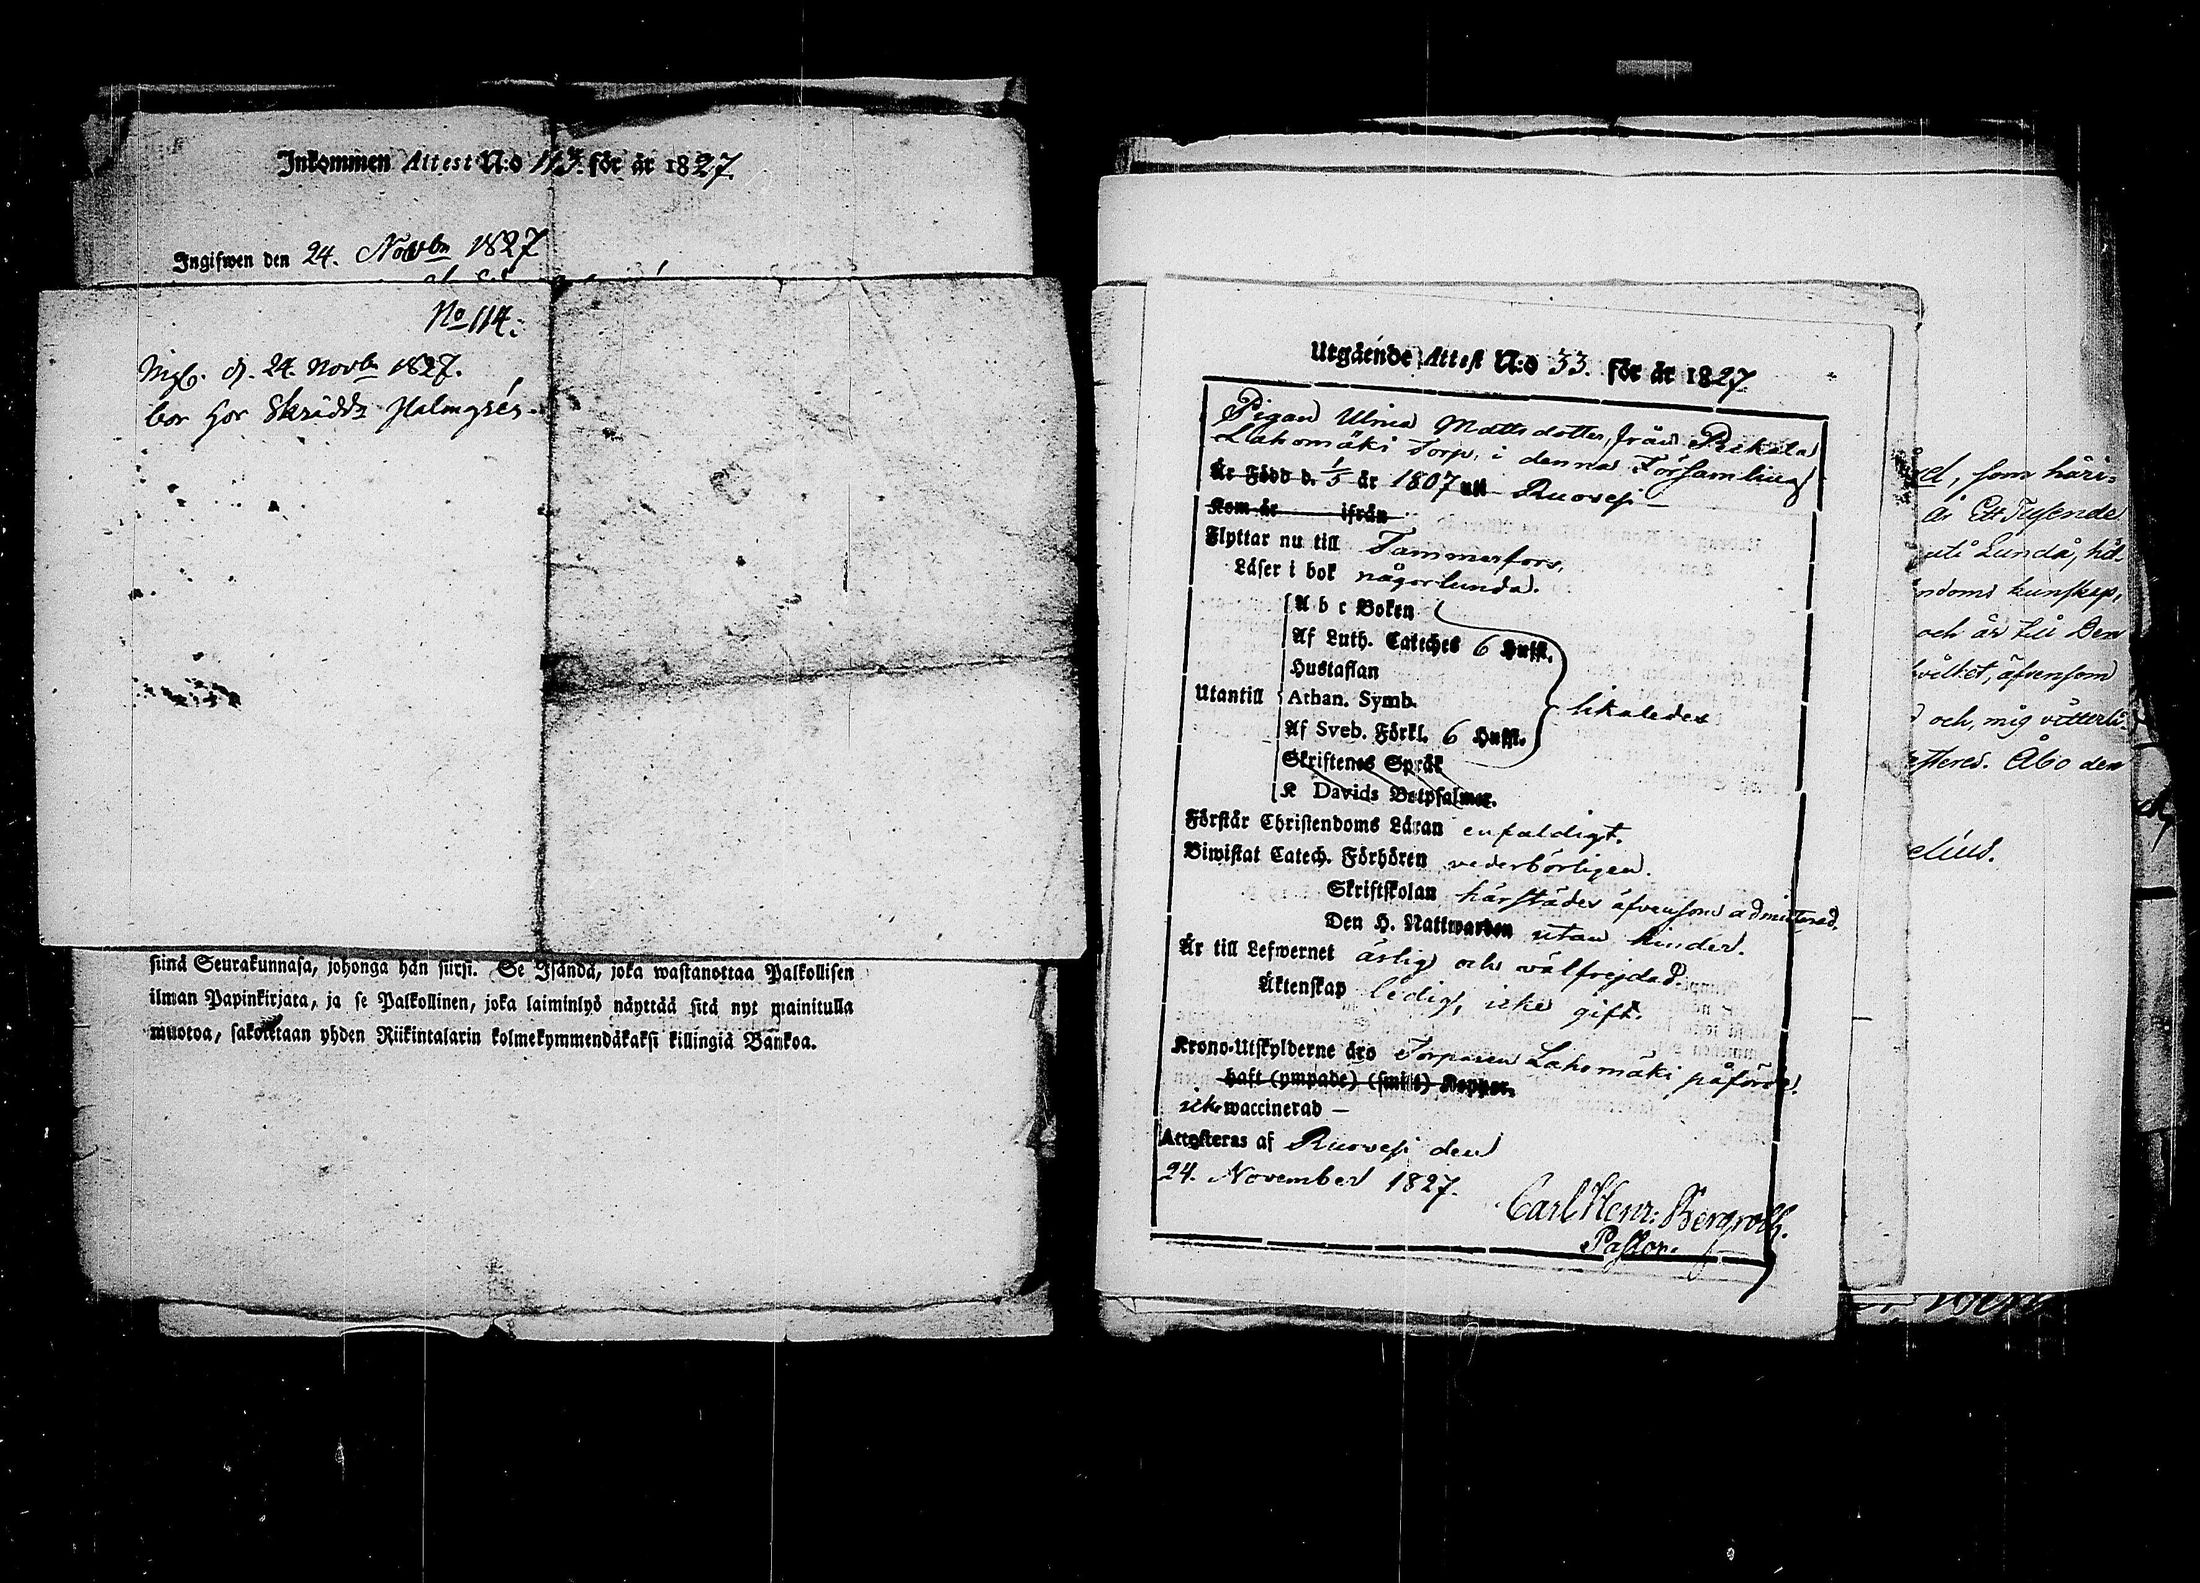 Inkommen Attest N:o 113. för år 1827.
Ingifwen den 24. Novbr 1827
No 114.
Ingf. d. 24 Novbr 1827.
bor hos Skrädd:
siinä Seurakunnasa, johonga hän siirsi. Se Isändä, joka wastanottaa Palkollisen
ilman Papinkirjata, ja se Palkollinen, joka laiminlyö näyttää sitä nyt mainitulla
muotoa, sakotetaan yhden Riikintalarin kolmekymmendäkaksi killingiä Bankoa.
Utgående Attest N:o 33. för år 1827
Pigan Ulrica Matts dotter, från Pekkala
Lahomäki Torp, i denna Församling
Är Född d. 1/5 år 1807 uti Ruovesi
Kom år ifrån
Flyttar nu till Tammerfors.
Läser i bok någorlunda.
A b c Boken
Af Luth. Cateches 6 Hufst.
Hustaflan
Utantill Athan. Symb. likaledes
Af Sveb. Förkl. 6 Hufst.
Skriftenes Språk
K Davids Botpsalmer.
Förstår Christendoms Läran enfaldigt.
Biwistat Catech. Förhören vederbörligen.
Skriftskolan härstädes äfvensom admitterad.
Den H. Nattwarden utan hinder.
Är till Lefwernet ärlig och välfrejdad.
Äktenskap ledig, icke gift.
Krono-Utskylderne äro Torparen Lahomäki påförde.
haft (ympade) (smitt) Koppor.
icke waccinerad —
Attesteras af Ruovesi den
24. November 1827.
Carl Henr: Bergroth.
Pastor.
som häri-
år Ett Tusende
uti Lundå,
ndoms kunskap,
och är till Den
hvilket, äfvensom
och, mig vitterli-
esteras. Åbo den
elius.